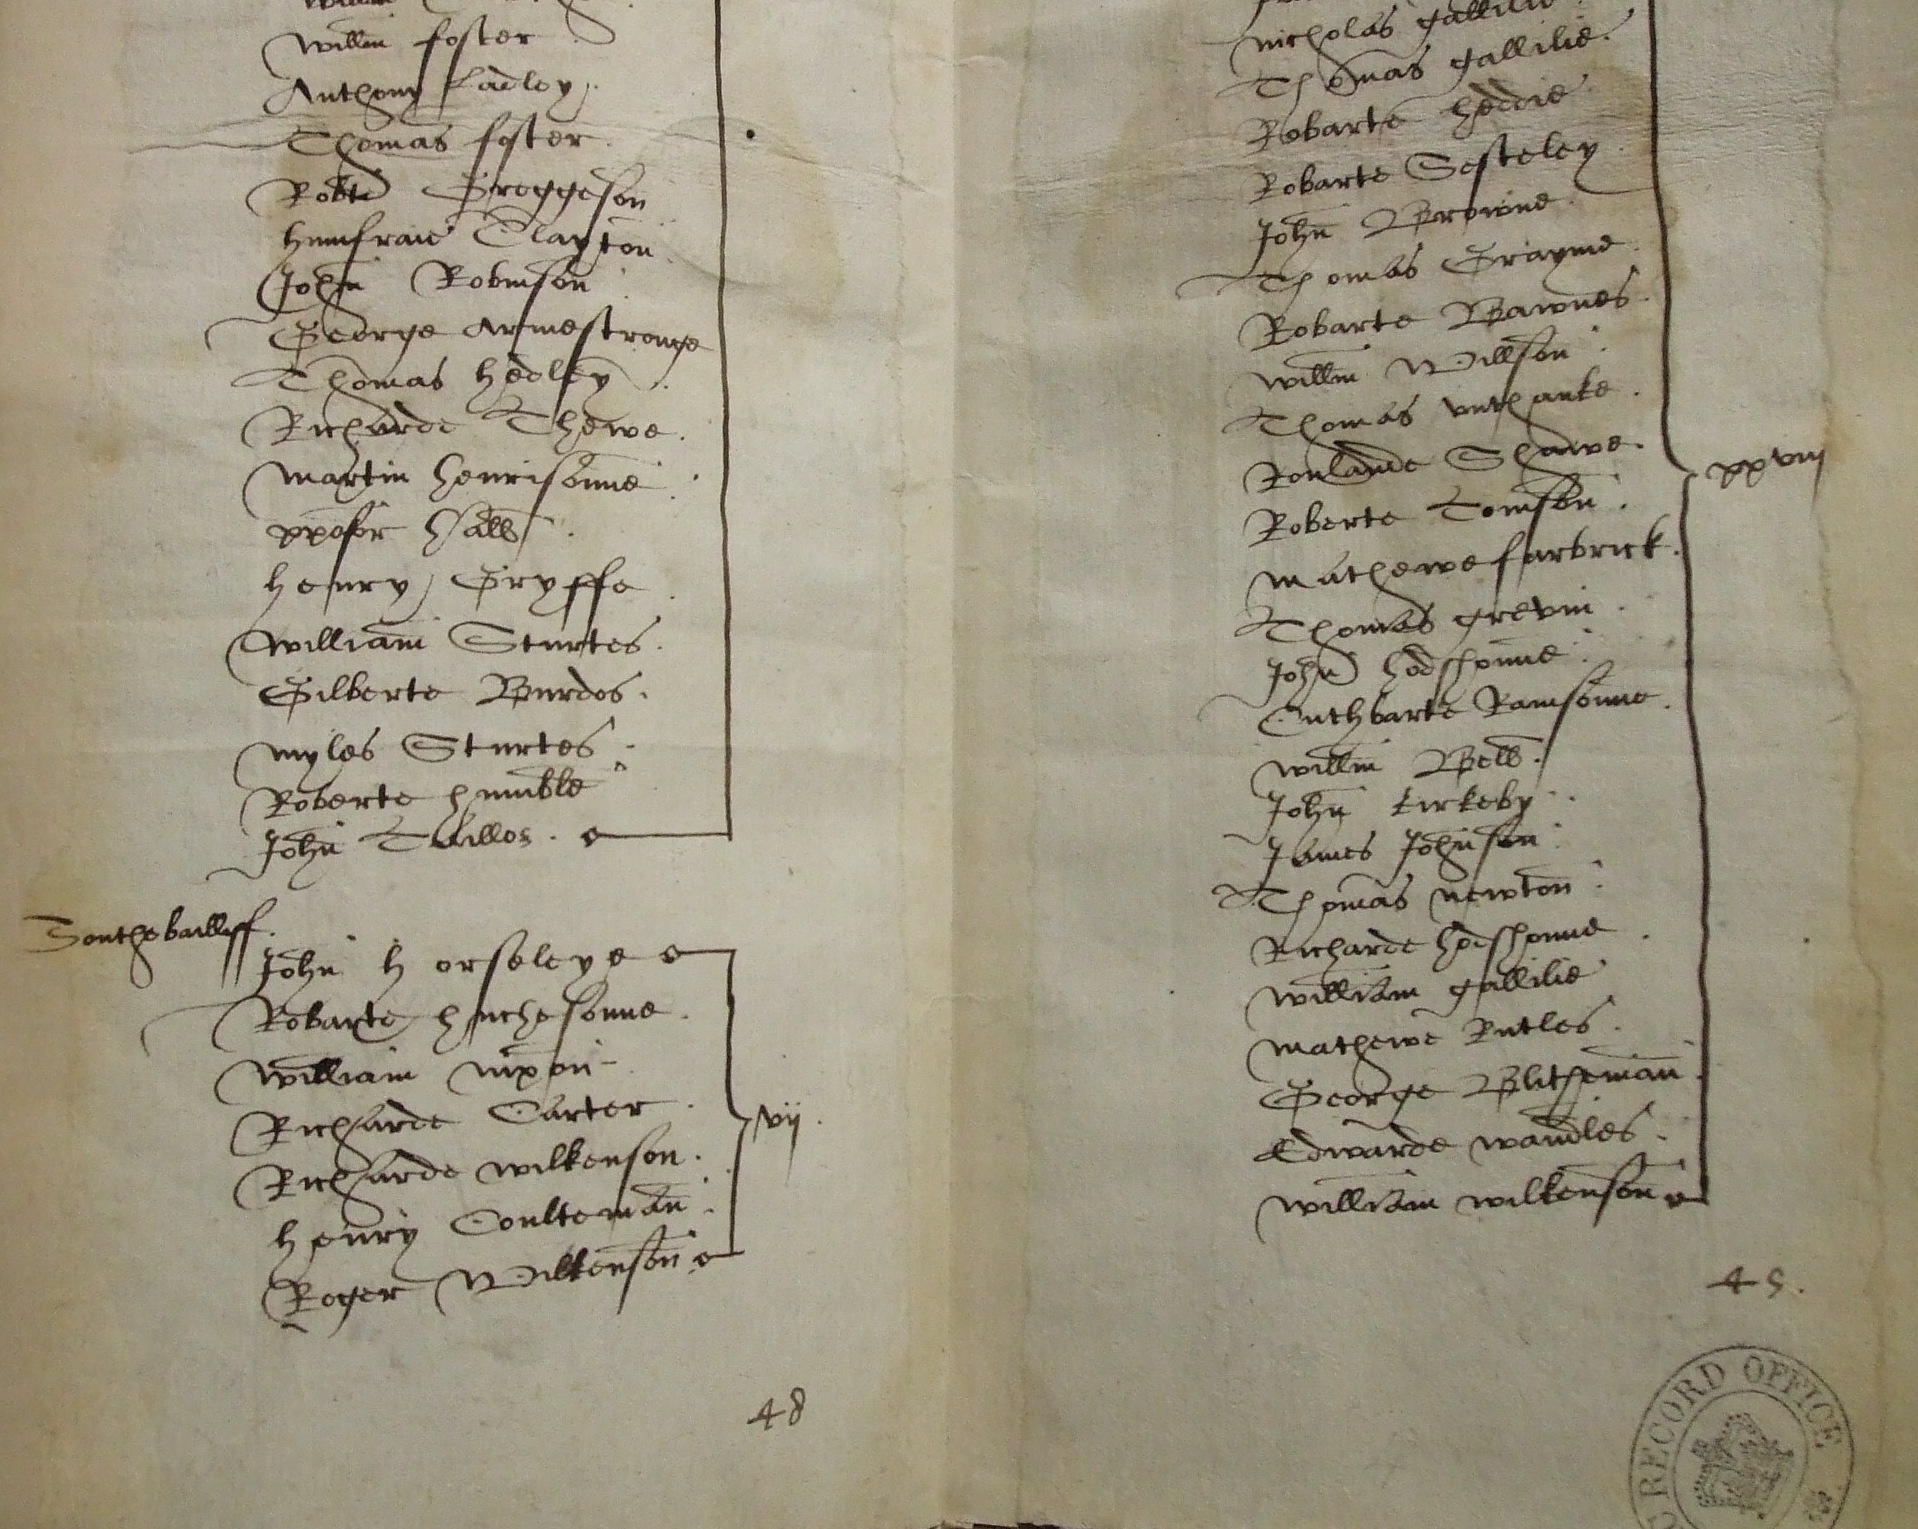 Willm foster
Anthony Ladley
Thomas foster
Robte Greggeson
humfraie Clayton
John Robinson
George Armestronge
Thomas hedley
Richarde Thewe
martin henrisonne
xpofer hall
henry Gryffe
William Sturtes
Gilberte Burdos
myles Sturtes
Roberte humble
John
Southebailliff
John horseleye
Robarte huchesonne
William nixon
Richarde Carter
Richarde wilkenson
henry Coulteman
Roger Wilkenson
vij
48
nicholas gallilie
Thomas gallilie
Robarte heddie
Robarte Sesteley
John Browne
Thomas Grayme
Robarte Bawnes
Willm Willson
Thomas vnthanke
Roulande Shawe
Roberte Tomson
mathewe farbrick
Thomas grevin
John hodshonne
Cuthbarte Ramsonne
Willm Bell
John kirkeby
James Johnson
Thomas newton
Richarde hodshonne
William gallilie
mathewe Rutles
George Blitheman
Edwarde wandles
William wilkenson
xxviij
49.
RECORD OFFICE